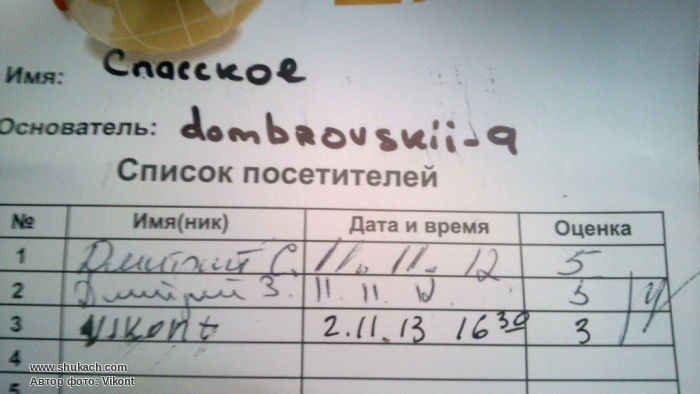 Имя: Спасское
Основатель: dombrovskii-a
Список посетителей
№ Имя(ник) Дата и время Оценка
1 Дмитрий С. 11. 11. 12 5
2 Дмитрий З. 11. 11. 12. 5
3 Vikont 2.11.13 16 30 3
4
5
www.shukach.com
Автор фото: Vikont